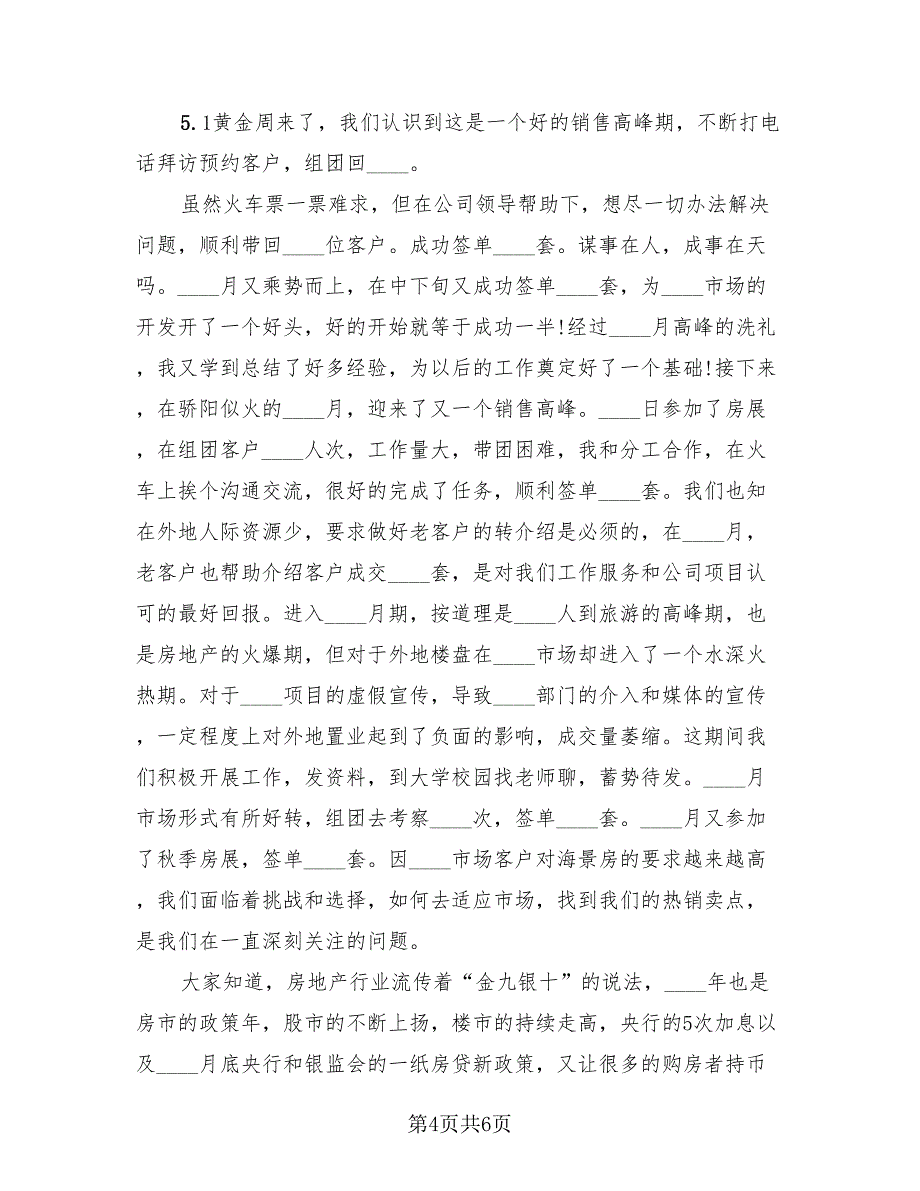 5.1黄金周来了，我们认识到这是一个好的销售高峰期，不断打电
话拜访预约客户，组团回____。
虽然火车票一票难求，但在公司领导帮助下，想尽一切办法解决
问题，顺利带回____位客户。成功签单____套。谋事在人，成事在天
吗。____月又乘势而上，在中下旬又成功签单____套，为____市场的
开发开了一个好头，好的开始就等于成功一半!经过____月高峰的洗礼
，我又学到总结了好多经验，为以后的工作奠定好了一个基础!接下来
，在骄阳似火的____月，迎来了又一个销售高峰。____日参加了房展
，在组团客户____人次，工作量大，带团困难，我和分工合作，在火
车上挨个沟通交流，很好的完成了任务，顺利签单____套。我们也知
在外地人际资源少，要求做好老客户的转介绍是必须的，在____月，
老客户也帮助介绍客户成交____套，是对我们工作服务和公司项目认
可的最好回报。进入____月期，按道理是____人到旅游的高峰期，也
是房地产的火爆期，但对于外地楼盘在____市场却进入了一个水深火
热期。对于____项目的虚假宣传，导致____部门的介入和媒体的宣传
，一定程度上对外地置业起到了负面的影响，成交量萎缩。这期间我
们积极开展工作，发资料，到大学校园找老师聊，蓄势待发。____月
市场形式有所好转，组团去考察____次，签单____套。____月又参加
了秋季房展，签单____套。因____市场客户对海景房的要求越来越高
，我们面临着挑战和选择，如何去适应市场，找到我们的热销卖点，
是我们在一直深刻关注的问题。
大家知道，房地产行业流传着“金九银十”的说法，____年也是
房市的政策年，股市的不断上扬，楼市的持续走高，央行的5次加息以
及____月底央行和银监会的一纸房贷新政策，又让很多的购房者持币
第4页共6页